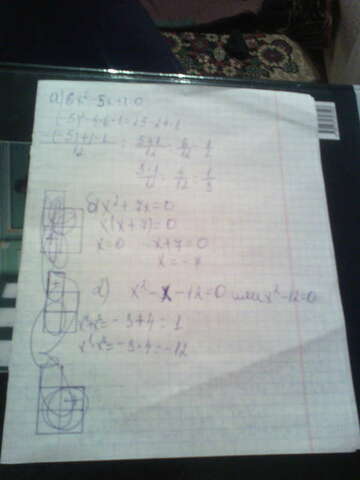 а) 6x²-5x+1=0
(-5)²-4·6·1=25-24=1
(-5)+1·1/12 = 5+1/12 = 6/12 = 1/2
5-1/12 = 4/12 = 1/3
б) x²+7x=0
x(x+7)=0
x=0 x+7=0
x=-7
в) x²-x-12=0 или x²-12=0
x¹+x²=-3+4=1
x¹x²=-3·4=-12